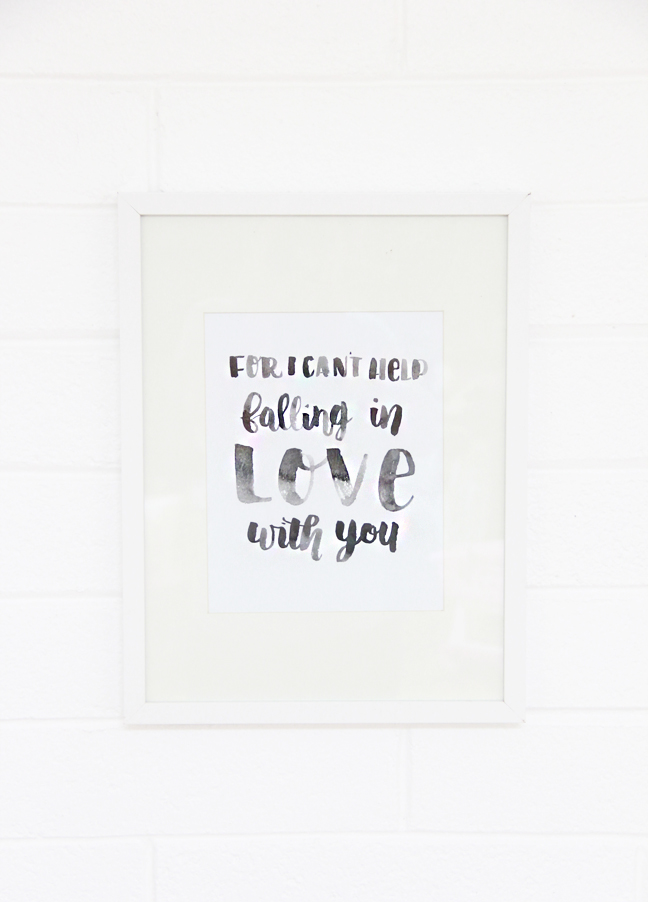 FOR I CAN'T HELP
falling in
LOVE
with you